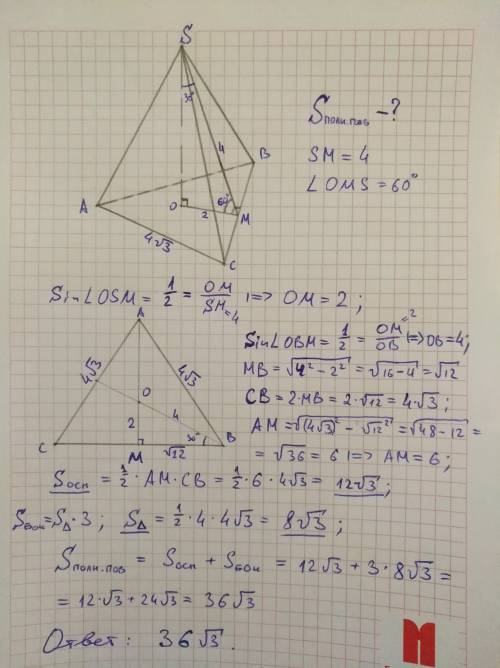 S
30°
4
B
A
O
60°
2
M
4√3
C
Sполн.пов - ?
SM = 4
∠OMS = 60°
Sin∠OSM = 1/2 = OM/SM=4 |=> OM = 2;
A
4√3
4√3
O
4
2
30°
C
M
√12
B
Sin∠OBM = 1/2 = OM=2/OB |=> OB = 4;
MB = √(4² - 2²) = √(16-4) = √12
CB = 2·MB = 2·√12 = 4√3;
AM = √((4√3)² - √12²) = √(48-12) =
= √36 = 6 |=> AM = 6;
Sосн = 1/2 · AM · CB = 1/2 · 6 · 4√3 = 12√3;
Sбок = S△ · 3; S△ = 1/2 · 4 · 4√3 = 8√3;
Sполн.пов = Sосн + Sбок = 12√3 + 3·8√3 =
= 12·√3 + 24√3 = 36√3
Ответ: 36√3.